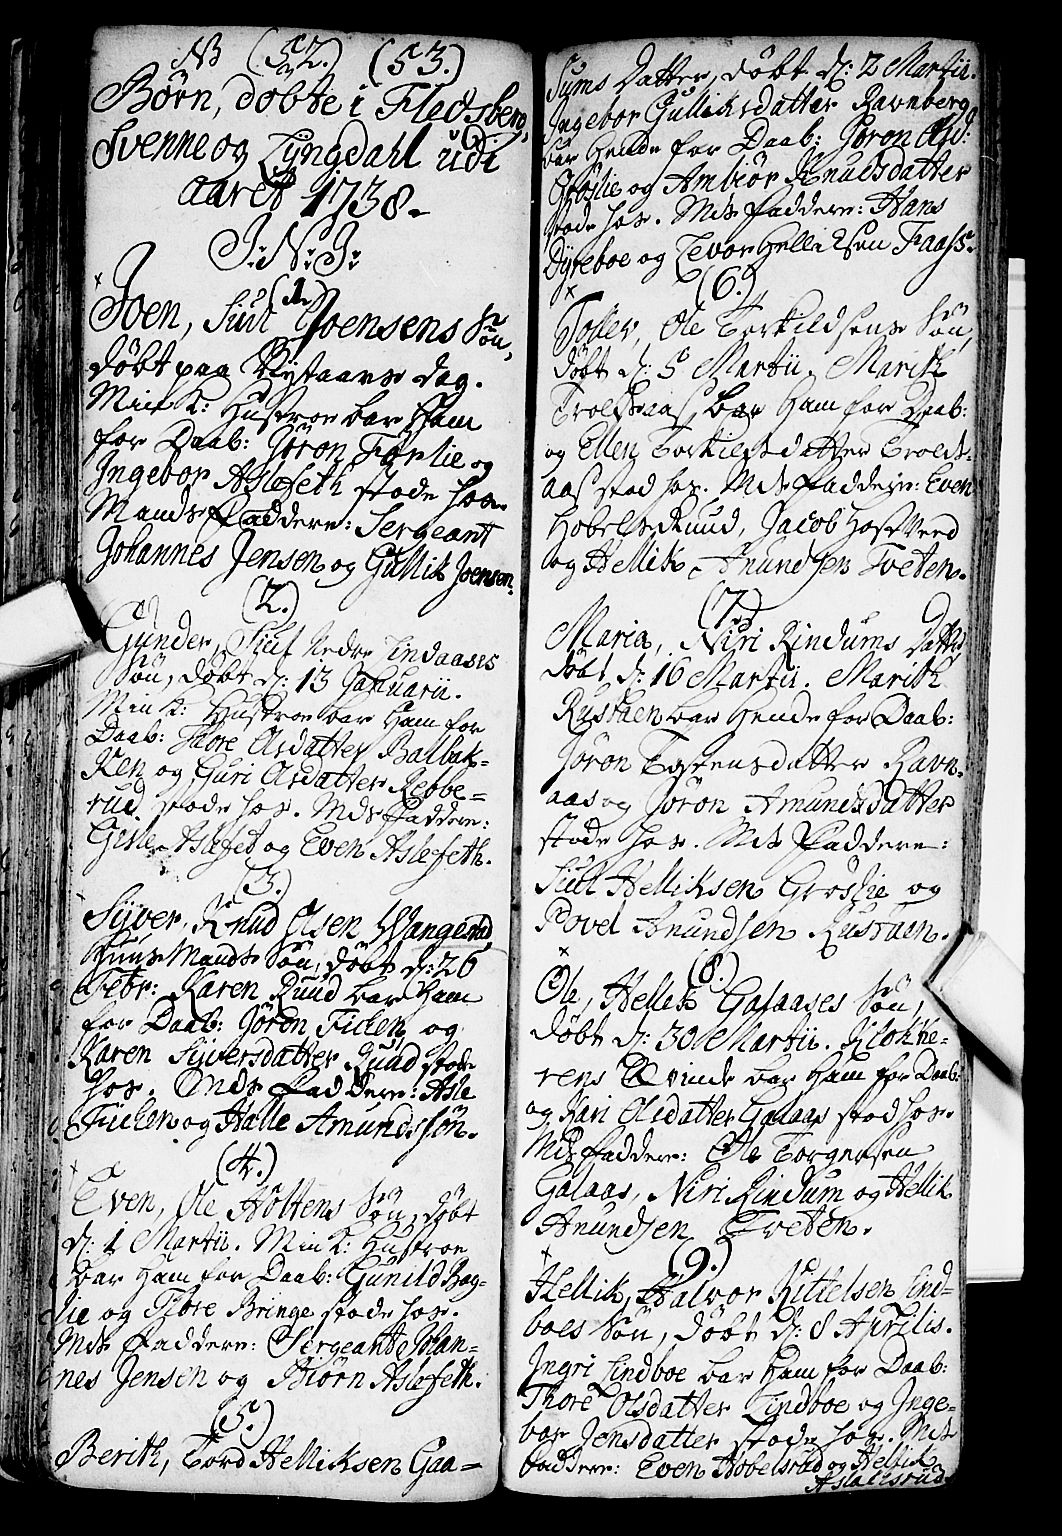 NB (52.) (53.)
Børn, døbte i Fledsberg,
Svenne og Lyngdahl udi
aaret 1738.
J: N: J:
(1.)
Joen, Siul Joensens Søn,
døbt paa Nytaars dag.
Min K: Hustroe bar Ham
for Daab: Jøron Førlie og
Ingebor Aslefeth stode hos.
Mands Faddere: Sergeant
Johannes Jensen og Gullik Joensen.
(2.)
Gunder, Siul Nedre Lindaases
Søn, døbt d: 13 Januarii.
Min K: Hustroe bar Ham for
Daab: Thore Olsdatter Balbak-
ken og Guri Olsdatter Rebbe=
rud stode hos. Mds Faddere:
Gisle Aslefet og Even Aslefeth.
(3.)
Siver, Knud Olsen Wangestad
Huus Mands Søn, døbt d: 26
Febr: Karen Ruud bar Ham
for Daab: Jøron Ficken og
Karen Siversdatter Ruud stode
hos. Mds Faddere: Asle
Ficken og Halle Amundssøn.
(4.)
Even, Ole Holtens Søn, døbt
d: 1 Martii. Min K: Hustroe
bar Ham for Daab: Gunild Bag-
lie og Thore Bringe stode hos.
Mds Faddere: Sergeant Johan=
nes Jensen og Biørn Aslefeth.
(5.)
Berith, Tord Helliksen Gaa=
sums Datter, døbt d: 2 Martii.
Ingebor Gulliksdatter Ravnberg
bar Hende for Daab: Jøron Old:
Groslie og Ambiør Knudsdatter
stode hos. Mds Faddere: Hans
Dyreboe og Tevor Helliksen Faass:
(6.)
Toller, Ole Torkildsens Søn,
døbt d: 5 Martii. Marith
Troldsaas, bar Ham for Daab:
og Ellen Torkilsdatter Trolds-
aas stod hos. Mds Faddere: Even
Hobelsruud, Jacob Hoff Werd
og Hellik Anundsen Tveten.
(7.)
Maria, Niri Rindums Datter
døbt d: 16 Martii. Marith
Rustaen bar Hende for Daab:
Jøron Tostensdatter Ravn-
aas og Jøron Amundsdatter
stode hos. Mds Faddere:
Siul Helliksen Groslie og
Povel Anundsen Rustaen.
(8.)
Ole, Hellik Galaases Søn,
døbt d: 30 Martii. Klokke=
rens Qvinde bar Ham for Daab:
og Kari Olsdatter Galaas stod hos.
Mds Faddere: Ole Torgersen
Galaas, Niri Rindum og Hellik
Anundsen Tveten.
(9.)
Hellik, Halvor Kittelsen Lind=
boes Søn, døbt d: 8 Aprilis.
Ingri Lindboe bar Ham for Daab:
Thore Olsdatter Lindboe og Inge=
bor Jensdatter stode hos. Mds
Faddere: Even Hobelsrud og Hellik
Aslaksrud